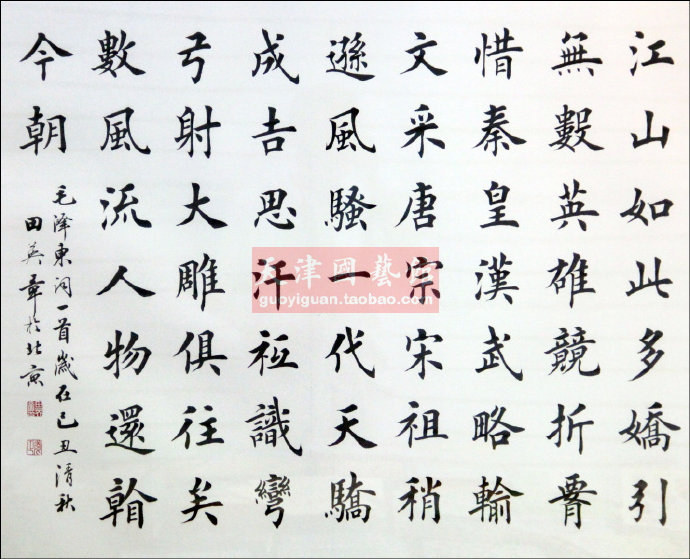 江山如此多嬌引
無數英雄競折腰
惜秦皇漢武略輸
文采唐宗宋祖稍
遜風騷一代天驕
成吉思汗祗識彎
弓射大雕俱往矣
數風流人物還看
今朝
毛泽東词一首歲在己丑清秋
田英章於北京
天津國藝館
guoyiguan.taobao.com